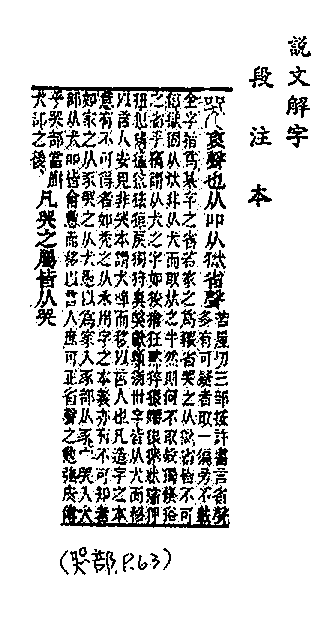 說文解字
段注本
哭 哀聲也从吅从獄省聲
苦屋切三部按許書言省聲
多有可疑者取一偏旁不載
全字指爲某字之省若家之爲豭省哭之从獄省皆不可
信獄固从㹜非从犬而取㹜之半然則何不取
之省乎竊謂从犬之字如狡獪狂默猝猥狠獷狀獳狎
狃犯猜猛犺狟戾獨狩臭獘獻類猶卅字皆从犬而移
以言人安見非哭本謂犬嘷而移以言人也凡造字之本
意有不可得者如禿之从禾用字之本義亦有不可知者
如家之从豕哭之从犬愚以爲家入豕部从豕宀哭入犬
部从犬吅皆會意而移以言人庶可正省聲之勉強皮傅
乎哭部當廁
犬部之後
凡哭之屬皆从哭
(哭部,P.63)